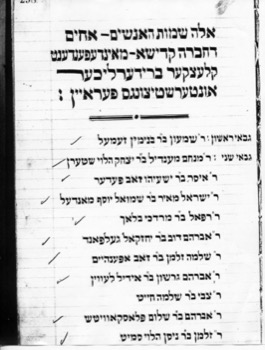 אלה שמות האנשים – אחים
דחברה קדישא – אינדעפענדענט
קלעצקער ברידערליכער
אונטערשטיצונגס פעראיין :
גבאי ראשון : ר׳ שמעון בר בנימין זעמעל
גבאי שני : ר׳ מנחם מענדיל בר יצחק הלוי שטערן
ר׳ איסר בר ישעיהו זאב פעדער
ר׳ ישראל מאיר בר שמואל יוסף מאנדעל
ר׳ רפאל בר מרדכי בלאך
ר׳ אברהם דוב בר יחזקאל געלפאנד
ר׳ שלמה זלמן בר זאב אפענהיים
ר׳ אברהם גרשון בר אידיל לעווין
ר׳ צבי בר שלמה חייט
ר׳ אברהם בר שלום פלאסקאוויטש
ר׳ זלמן בר ניסן הלוי סמיט